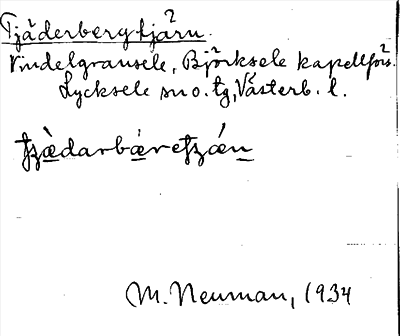 Tjäderbergtjärn.
Vindelgransele, Björksele kapellförs.
Lycksele sn o. tg, Västerb. l.
M. Neuman, 1934